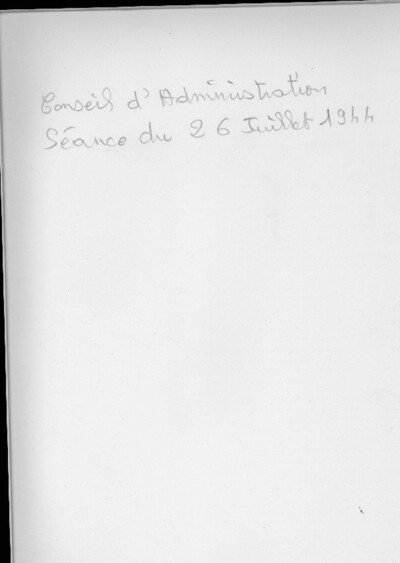 Conseil d'Administration
Séance du 26 Juillet 1944